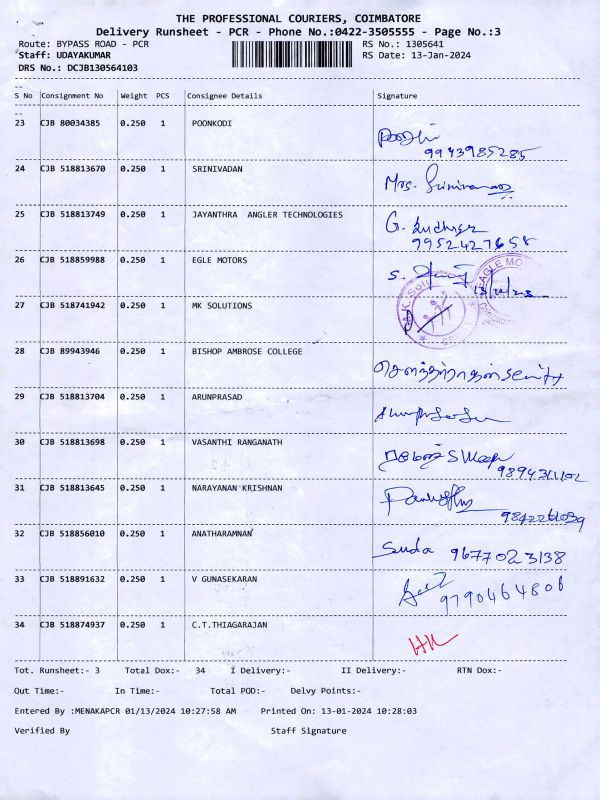 THE PROFESSIONAL COURIERS, COIMBATORE
Delivery Runsheet - PCR - Phone No.:0422-3505555 - Page No.:3
Route: BYPASS ROAD - PCR RS No.: 1305641
Staff: UDAYAKUMAR RS Date: 13-Jan-2024
DRS No.: DCJB130564103
S No Consignment No Weight PCS Consignee Details Signature
23 CJB 80034385 0.250 1 POONKODI
9943985285
24 CJB 518813670 0.250 1 SRINIVADAN Mrs.
25 CJB 518813749 0.250 1 JAYANTHRA ANGLER TECHNOLOGIES G.
9952427658
26 CJB 518859988 0.250 1 EGLE MOTORS S.
EAGLE MO
27 CJB 518741942 0.250 1 MK SOLUTIONS
28 CJB 89943946 0.250 1 BISHOP AMBROSE COLLEGE
29 CJB 518813704 0.250 1 ARUNPRASAD
30 CJB 518813698 0.250 1 VASANTHI RANGANATH
31 CJB 518813645 0.250 1 NARAYANAN KRISHNAN
32 CJB 518856010 0.250 1 ANATHARAMNAN Suda 9677023138
33 CJB 518891632 0.250 1 V GUNASEKARAN
9790464806
34 CJB 518874937 0.250 1 C.T.THIAGARAJAN
Tot. Runsheet:- 3 Total Dox:- 34 I Delivery:- II Delivery:- RTN Dox:-
Out Time:- In Time:- Total POD:- Delvy Points:-
Entered By :MENAKAPCR 01/13/2024 10:27:58 AM Printed On: 13-01-2024 10:28:03
Verified By Staff Signature